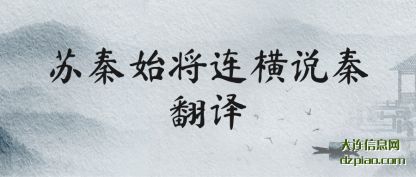 苏秦始将连横说秦
翻译
大连信息网
dzpiao.com